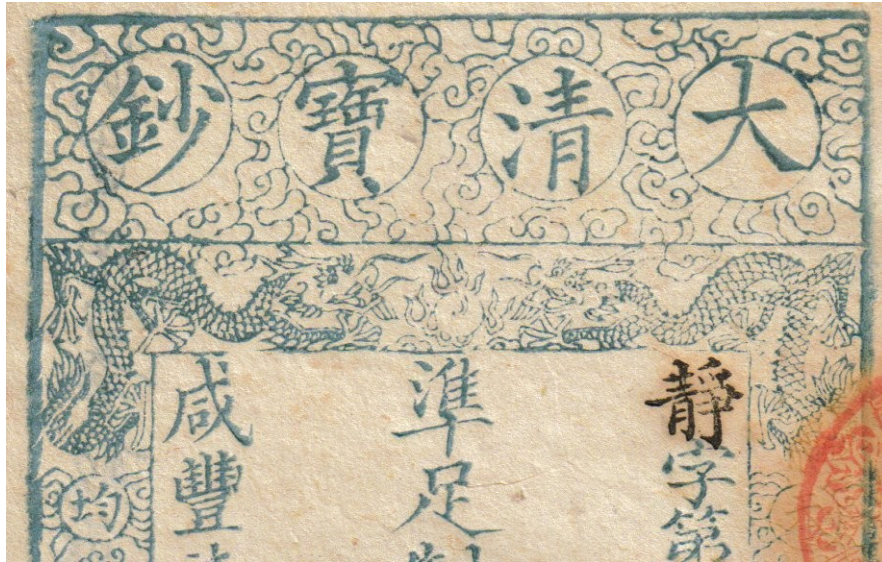 大清寶鈔
靜字第
準足制
咸豐
均